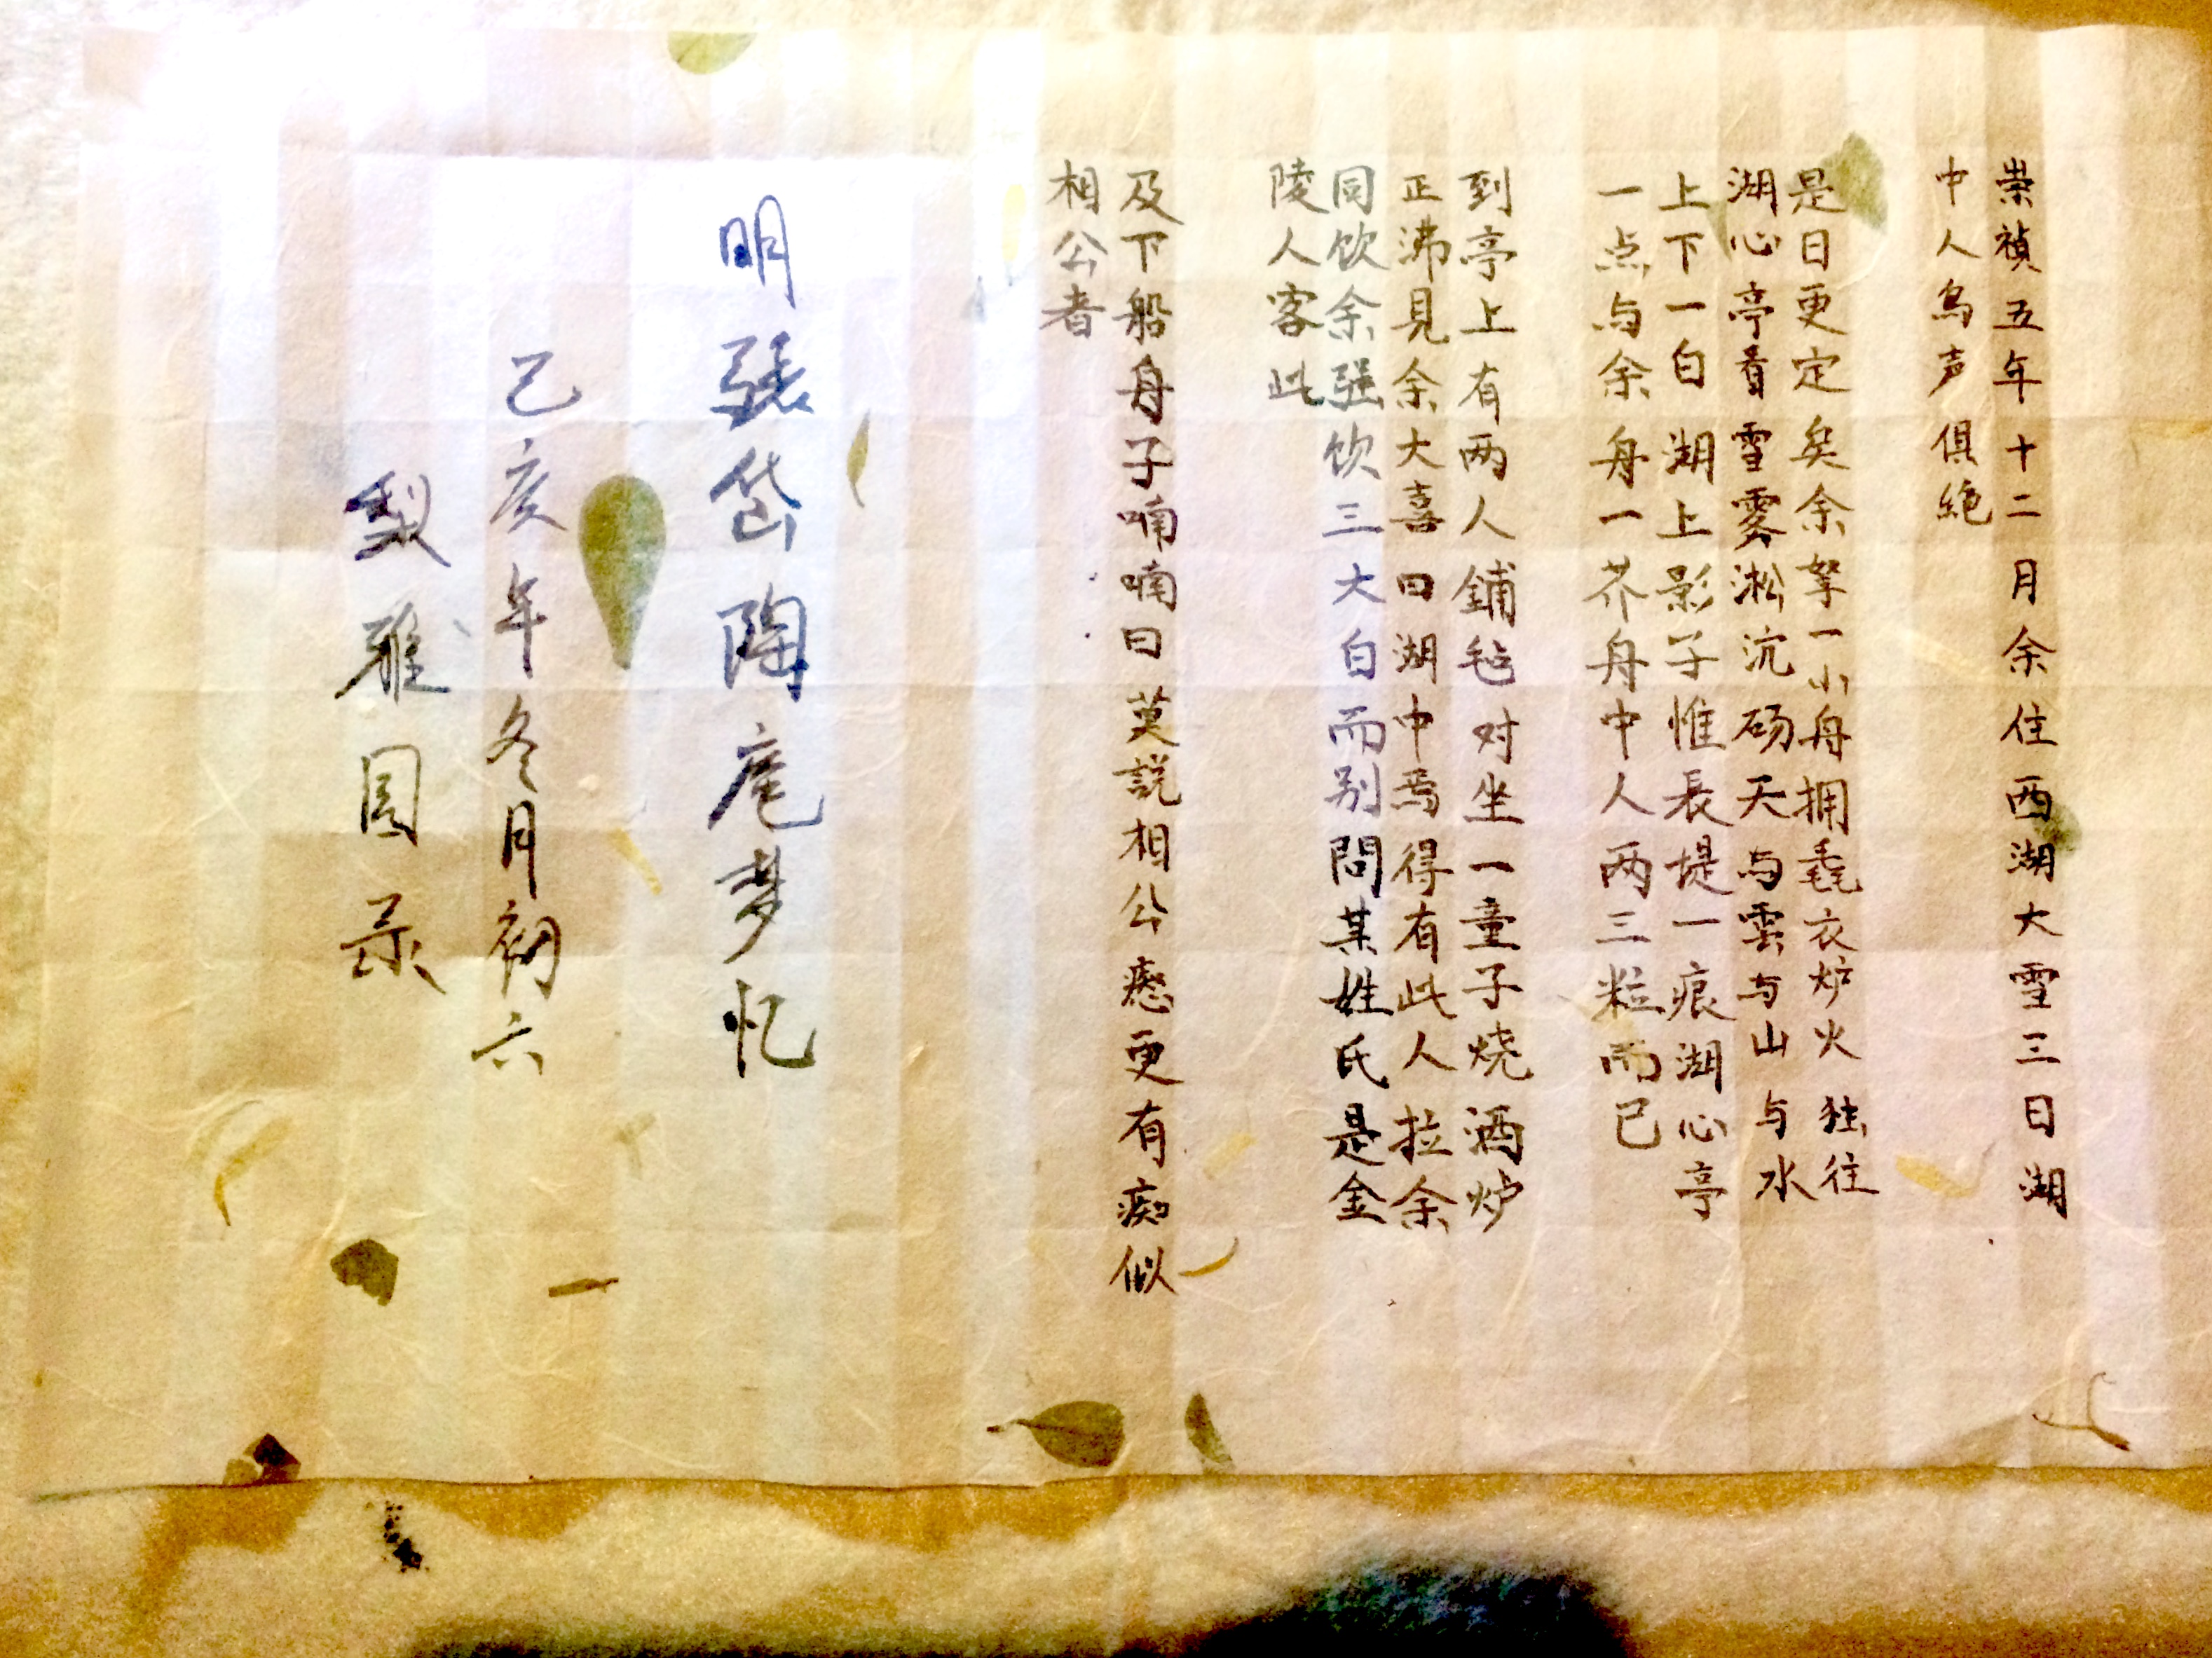 崇禎五年十二月余住西湖大雪三日湖
中人鸟声俱絶
是日更定矣余拏一小舟拥毳衣炉火独往
湖心亭看雪雾淞沆砀天与雲与山与水
上下一白湖上影子惟長堤一痕湖心亭
一点与余舟一芥舟中人两三粒而已
到亭上有两人鋪毡对坐一童子烧酒炉
正沸見余大喜曰湖中焉得有此人拉余
同饮余强饮三大白而别問其姓氏是金
陵人客此
及下船舟子喃喃曰莫説相公癡更有痴似
相公者
明張岱陶庵梦忆
己亥年冬月初六
雅園录